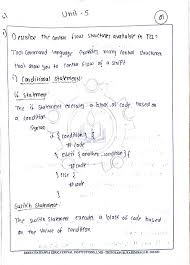 Unit - 5
01
1) Describe the control flow structures available in TCL?
Tool Command Language provides many control structures
that allow you to control flow of a script
i) Conditional Statement:
If Statement
The if Statement executes a block of code based
on a condition
Syntax
if { condition } {
# code
} elseif { another_condition } {
# code
} else {
# code
}
Switch Statement
The switch Statement executes a block of code based
on the value of condition